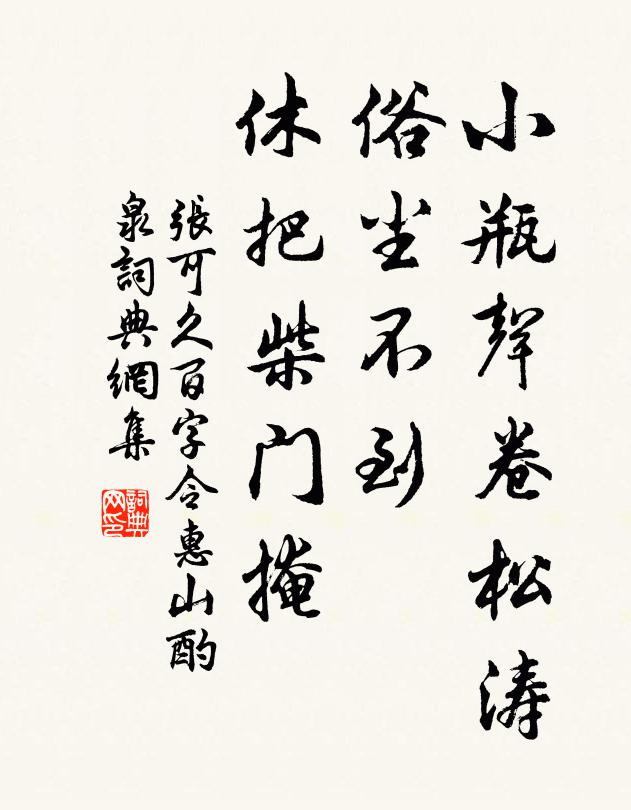 小瓶聲卷松涛
俗尘不到
休把柴门掩
張可久百字令惠山酌
泉詞典網集
詞典网印